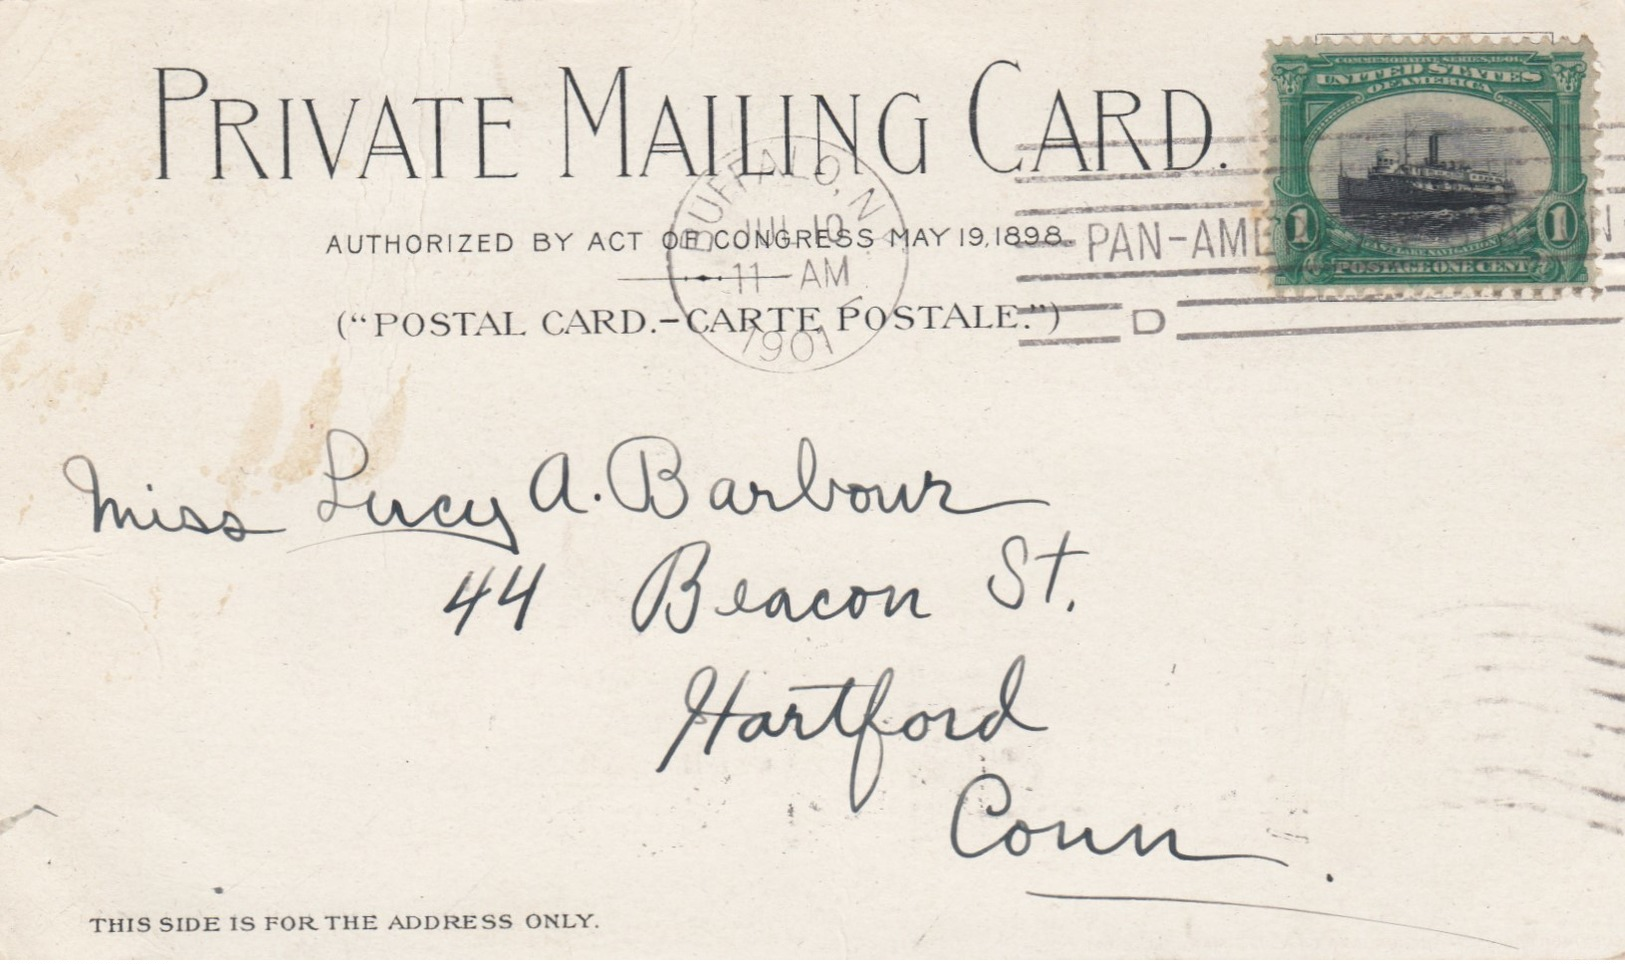 PRIVATE MAILING CARD.
AUTHORIZED BY ACT OF CONGRESS MAY 19, 1898.
("POSTAL CARD.-CARTE POSTALE.")
BUFFALO, N
JUL 10
11 - AM
1901
PAN-AME
D
COMMEMORATIVE SERIES, 1901
UNITED STATES
OF AMERICA
1 1
FAST LAKE NAVIGATION
POSTAGE ONE CENT
Miss Lucy A. Barbour
44 Beacon St.
Hartford
Conn.
THIS SIDE IS FOR THE ADDRESS ONLY.